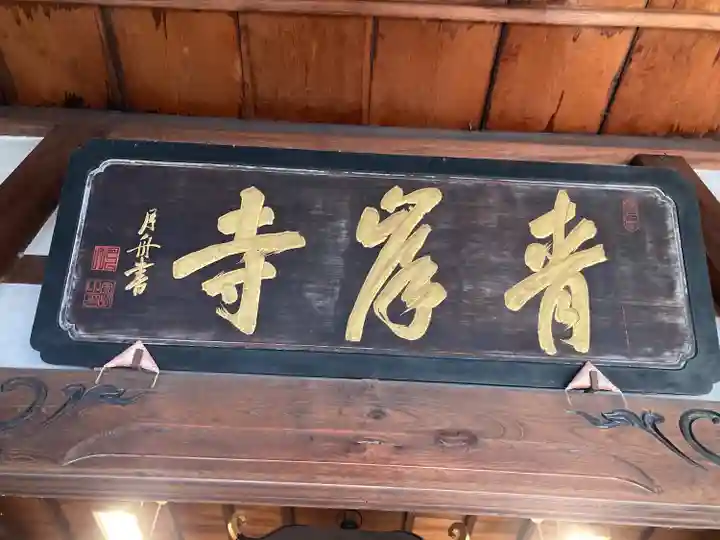 青岸寺
月舟書